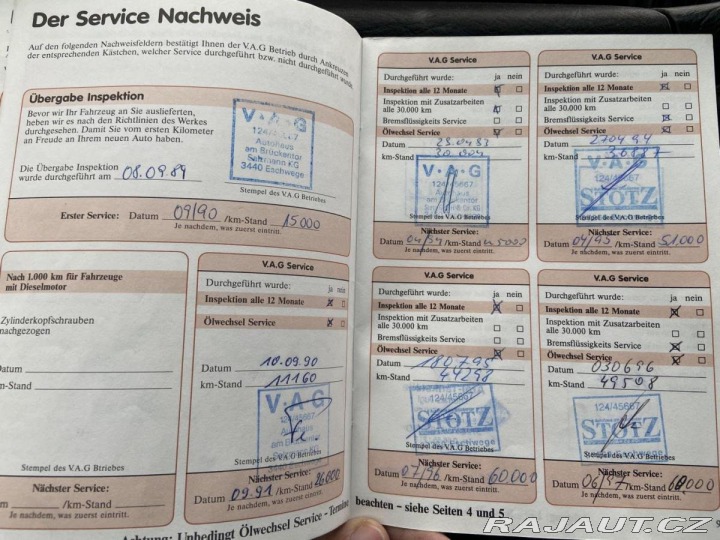 Der Service Nachweis
Auf den folgenden Nachweisfeldern bestätigt Ihnen der V.A.G Betrieb durch Ankreuzen
der entsprechenden Kästchen, welcher Service durchgeführt bzw. nicht durchgeführt wurde.
Übergabe Inspektion
Bevor wir Ihr Fahrzeug an Sie auslieferten,
haben wir es nach den Richtlinien des Werkes
durchgesehen. Damit Sie vom ersten Kilometer
an Freude an Ihrem neuen Auto haben.
Die Übergabe Inspektion
wurde durchgeführt am 08.09.89
V·A·G
Autohaus
am Brückentor
3440 Eschwege
Stempel des V.A.G Betriebes
Erster Service: Datum 09/90 /km-Stand 15000
Je nachdem, was zuerst eintritt.
Nach 1.000 km für Fahrzeuge
mit Dieselmotor
Zylinderkopfschrauben
nachgezogen
Datum
km-Stand
Stempel des V.A.G Betriebes
Nächster Service:
Datum /km-Stand
Je nachdem, was zuerst eintritt.
V.A.G Service
Durchgeführt wurde: ja nein
Inspektion alle 12 Monate
Ölwechsel Service
Datum 10.09.90
km-Stand 11160
V·A·G
124/45667
Stempel des V.A.G Betriebes
Nächster Service:
Datum 09.91 /km-Stand 26000
Je nachdem, was zuerst eintritt.
Achtung: Unbedingt Ölwechsel Service - Termine
V.A.G Service
Durchgeführt wurde: ja nein
Inspektion alle 12 Monate
Inspektion mit Zusatzarbeiten
alle 30.000 km
Bremsflüssigkeits Service
Ölwechsel Service
Datum
km-Stand
V·A·G
124/45667
Autohaus
Stempel des V.A.G Betriebes
Nächster Service:
Datum 04/94 /km-Stand
Je nachdem, was zuerst eintritt.
V.A.G Service
Durchgeführt wurde: ja nein
Inspektion alle 12 Monate
Inspektion mit Zusatzarbeiten
alle 30.000 km
Bremsflüssigkeits Service
Ölwechsel Service
Datum 270494
km-Stand
V·A·G
124/45667
STOTZ
Stempel des V.A.G Betriebes
Nächster Service:
Datum 04/95 /km-Stand 51.000
Je nachdem, was zuerst eintritt.
V.A.G Service
Durchgeführt wurde: ja nein
Inspektion alle 12 Monate
Inspektion mit Zusatzarbeiten
alle 30.000 km
Bremsflüssigkeits Service
Ölwechsel Service
Datum 180795
km-Stand 44298
124/45667
STOTZ
Eschwege
Stempel des V.A.G Betriebes
Nächster Service:
Datum 07/96 /km-Stand 60000
Je nachdem, was zuerst eintritt.
V.A.G Service
Durchgeführt wurde: ja nein
Inspektion alle 12 Monate
Inspektion mit Zusatzarbeiten
alle 30.000 km
Bremsflüssigkeits Service
Ölwechsel Service
Datum 030696
km-Stand 49508
124/45667
STOTZ
Stempel des V.A.G Betriebes
Nächster Service:
Datum 06/97 /km-Stand
Je nachdem, was zuerst eintritt.
beachten - siehe Seiten 4 und 5
9
RAJAUT.CZ